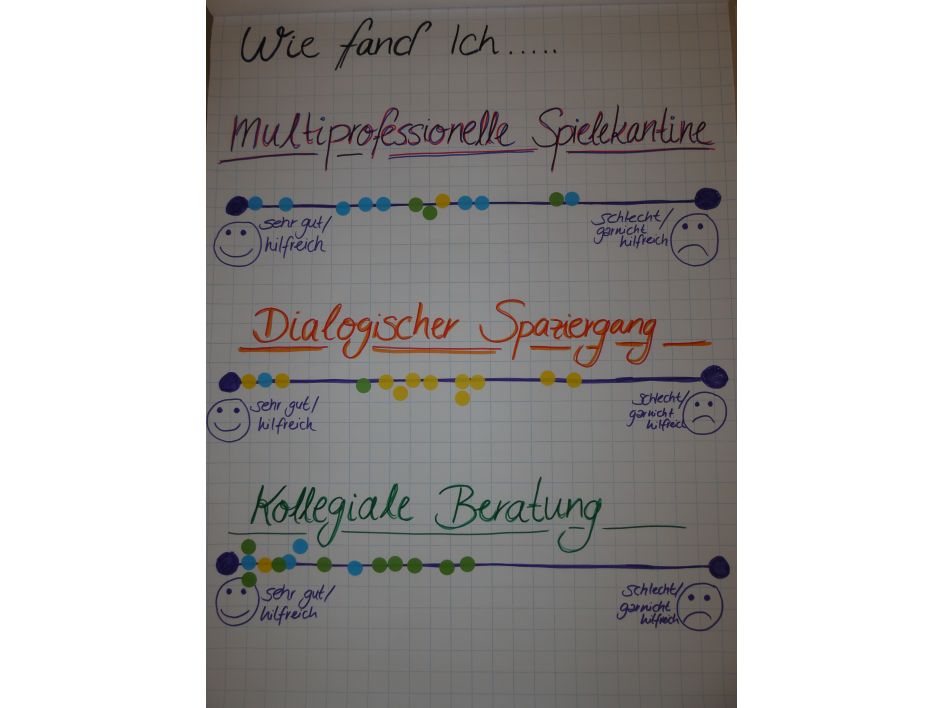 Wie fand Ich.....
Multiprofessionelle Spielekantine
sehr gut/
hilfreich
schlecht/
garnicht
hilfreich
Dialogischer Spaziergang
sehr gut/
hilfreich
schlecht/
garnicht
hilfreich
Kollegiale Beratung
sehr gut/
hilfreich
schlecht/
garnicht
hilfreich